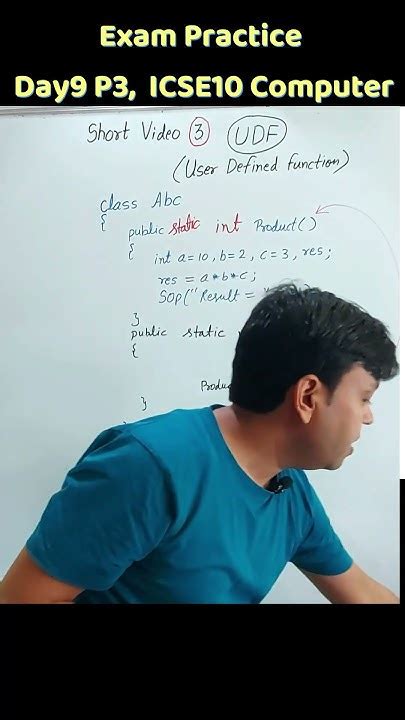 Exam Practice
Day9 P3, ICSE10 Computer
Short Video 3 UDF
(User Defined function)
class Abc
{
public static int Product()
{ int a=10, b=2, c=3, res;
res = a*b*c;
Sop("Result =
}
public static
{
}